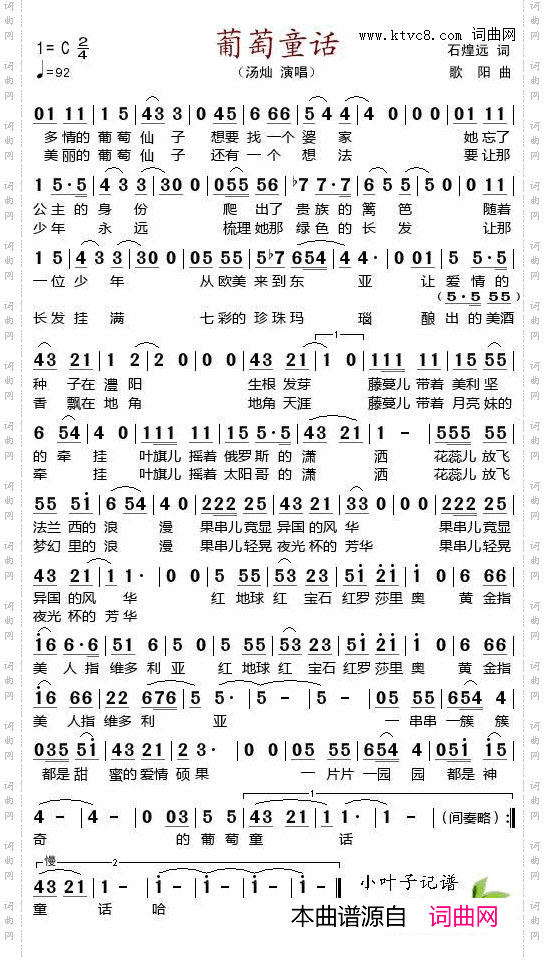 葡萄童话
www.ktvc8.com 词曲网
1=C 2/4
♩=92
（汤灿 演唱）
石煌远 词
歌 阳 曲
0 1 11 | 1 5 | 43 3 | 0 45 | 6 66 | 5 4 4 | 4 0 | 0 11 |
多情的 葡萄 仙子 想要 找一个 婆 家 她忘了
美丽的 葡萄 仙子 还有 一个 想 法 要让那
1 5·5 | 4 3 3 | 3 30 0 | 055 56 | ♭7 7·7 | 6 5 5 | 5 0 | 0 11 |
公主的 身 份 爬 出了 贵 族的 篱 笆 随着
少年 永 远 梳理她那 绿色的 长 发 让那
1 5 | 4 3 3 | 3 30 0 | 05 55 | 5♭7 654 | 4 4· | 0 01 | 5 5·5 |
一位 少 年 从欧美 来到东 亚 让 爱 情的
(5·5 55)
长发 挂 满 七彩的 珍珠玛 瑙 酿 出的美酒
43 21 | 1 2 | 2 0 0 | 0 0 | 43 21 | 1 0 | 111 11 | 15 55 |
种 子在 澧 阳 生根 发芽 藤蔓儿 带着 美利坚
香 飘在 地 角 地角 天涯 藤蔓儿 带着 月亮妹的
6 54 | 4 0 | 111 11 | 15 5·5 | 43 21 | 1 - | 555 55 |
的 牵 挂 叶旗儿 摇着 俄罗斯 的 潇 洒 花蕊儿 放飞
牵 挂 叶旗儿 摇着 太阳哥 的 潇 洒 花蕊儿 放飞
55 5i | 6 54 | 4 0 | 222 25 | 43 21 | 3 0 | 0 0 | 222 25 |
法兰 西的 浪 漫 果串儿竟显 异国的 风 华 果串儿竟显
梦幻 里的 浪 漫 果串儿轻晃 夜光杯的 芳华 果串儿轻晃
43 21 | 1 1· | 0 0 | 5 55 | 53 23 | 5i 2i | 6 0 | 6 66 |
异国的 风 华 红 地球 红 宝石 红罗 莎里 奥 黄 金指
夜光杯的 芳华
i6 6·6 | 51 6 | 5 0 | 5 55 | 53 23 | 5i 2i | 6 0 | 6 66 |
美 人指 维多 利 亚 红 地球 红 宝石 红罗 莎里 奥 黄 金指
i6 66 | 22 676 | 5 5· | 5 - | 05 55 | 654 4 |
美 人指 维多 利 亚 一 串串 一簇 簇
035 5i | 43 21 | 2 3· | 0 0 | 05 55 | 654 4 | 05i i5 |
都是 甜 蜜的 爱情 硕 果 一 片片 一园 园 都是 神
4 - | 4 - | 0 03 | 5 5 | 43 21 | 1 1 | 1 - | (间奏略) :‖
奇 的 葡萄 童 话
慢 2
43 21 | i - | i - | i - | i - | i - ‖
童 话 哈
小叶子记谱
本曲谱源自 词曲网